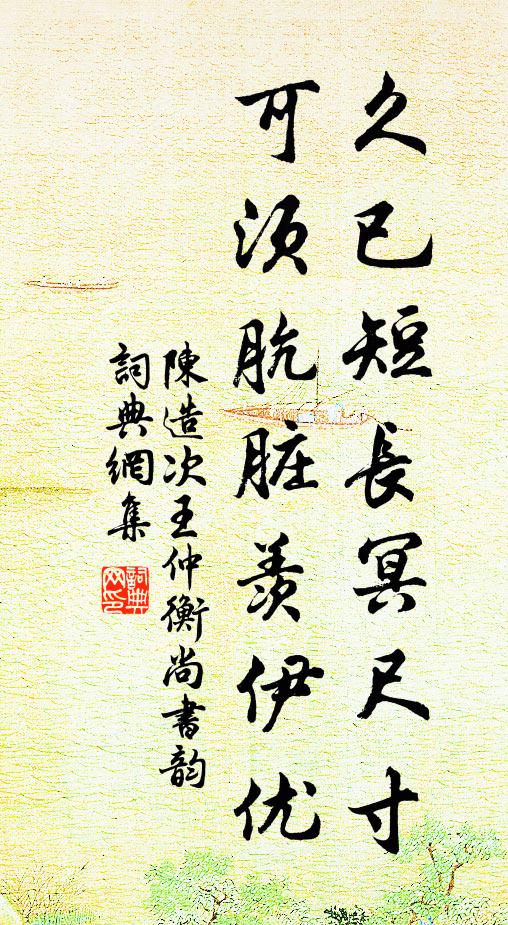 久已短長冥尺寸
可须肮脏羨伊优
陳造次王仲衡尚書韵
詞典網集
詞典
网印